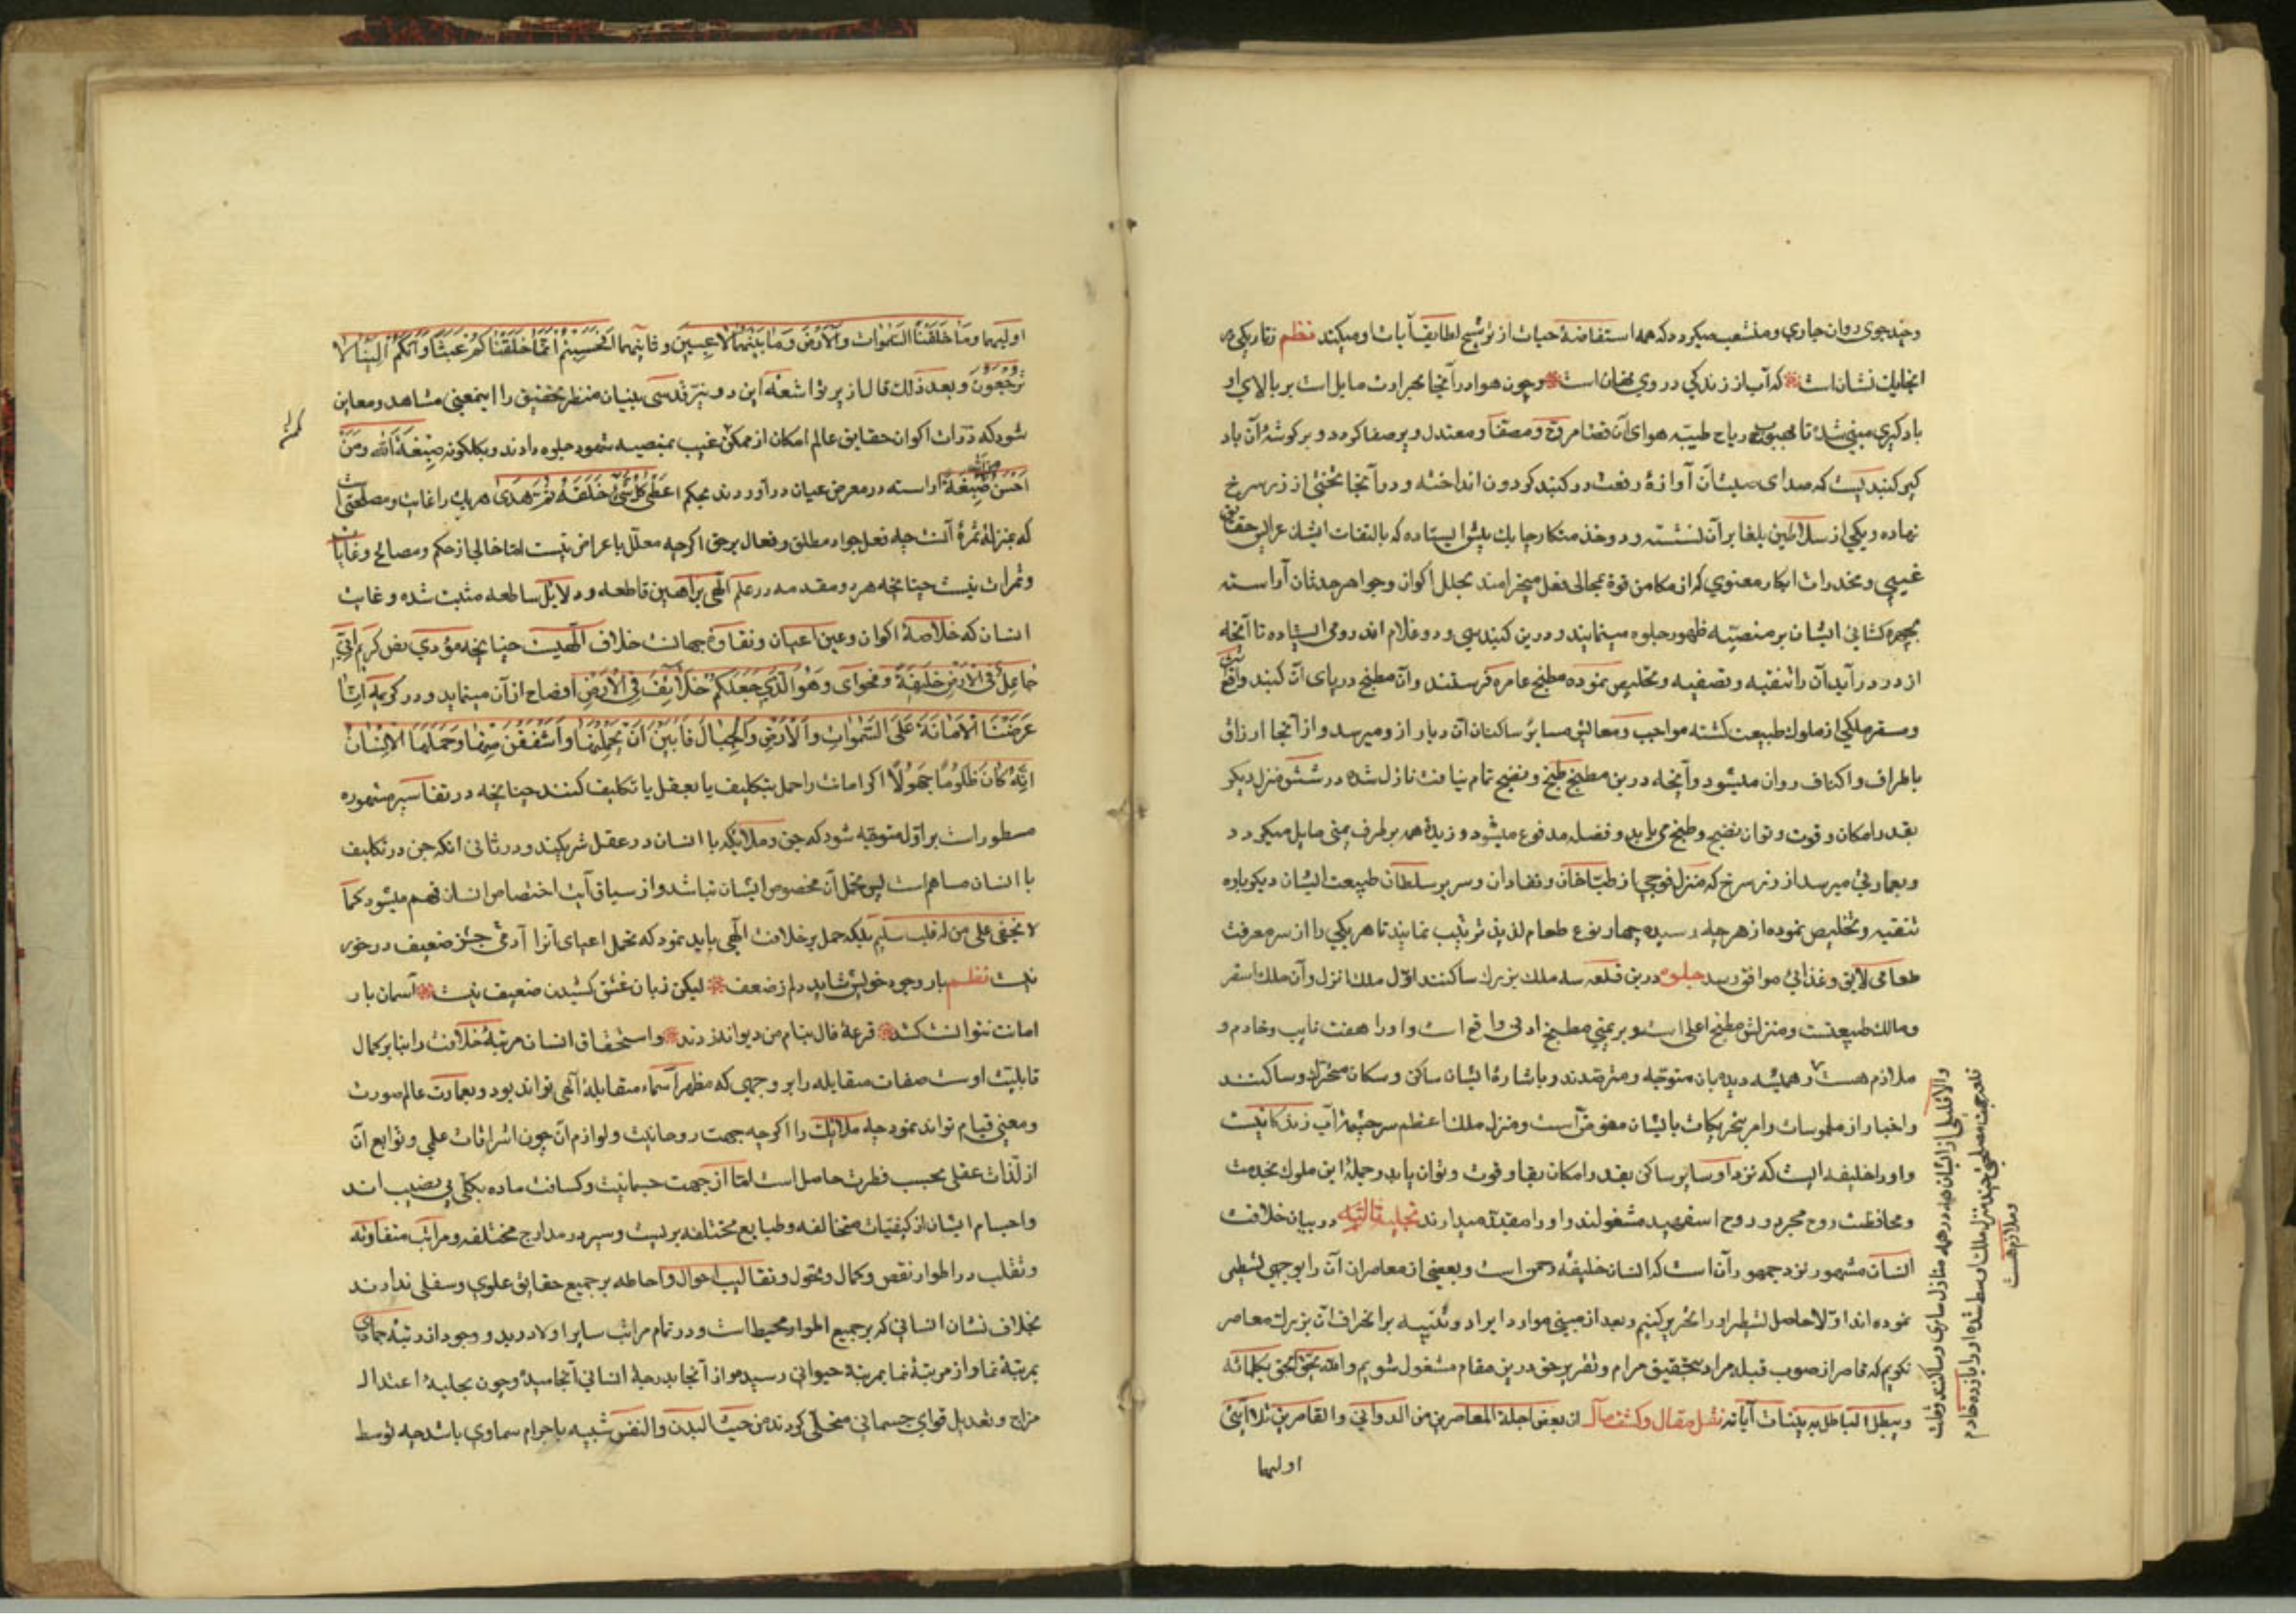 وچند جوی روان جاری و منشعب میکردد که همه استفاضهٔ حیات از ترشیح لطایف آیات او میکنند نظم
انجا یک نشان است که آب از زندکی در وی نهان است وچون هوا در آنجا بحرارت مایل است بر بالای او
بادکیری مبنی شده تا بهبوب ریاح طیبه هوای آن فضا مروح و مصفا و معتدل و پرصفا کردد و بر کوشهٔ آن باد
کیر کنبدیست که صدای صیت آن آوازهٔ رفعت در کنبد کردون انداخته و در آنجا تختی از زر سرخ
نهاده و یکی از سلاطین بلغا بر آن نشسته و دو خدمتکار چابک پیش ایستاده که بالتفات ایشان عرایس حقایق
غیبی و مخدرات ابکار معنوی که از مکامن قوة بمجالی فعل میخرامند بحلل اکوان وجواهر حدثان آراسته
بچهره کشائی ایشان بر منصهٔ ظهور جلوه مینمایند و درین کنبد سی و دو غلام اند رومی ایستاده تا آنچه
از در درآید آن را تنقیه و تصفیه و تخلیص نموده مطبخ عامره فرستند وآن مطبخ در پای آن کنبد واقع
ومستقر ملکی از ملوک طبیعت کشته مواجب و معایش سایر ساکنان آن دیار ازو میرسد و از آنجا ارزاق
باطراف واکناف روان میشود وآنچه درین مطبخ طبخ و نضج تمام نیافت نازل شده در شش منزل دیکر
بقدر امکان و قوت و توان نضج و طبخ می یابد و فضله مدفوع میشود و زبدهٔ همه بر طرف یمنی مایل میکردد
وبعمارتی میرسد از زر سرخ که منزل فوجی از طباخان ونقادان و سریر سلطان طبیعت ایشان دیکرباره
تنقیه و تخلیص نموده از هرچه رسیده چهار نوع طعام لذیذ ترتیب نمایند تا هر یکی را از سر معرفت
طعامی لایق وغذائی موافق رسد جلوه درین قلعه سه ملک بزرک ساکنند اول ملک انزل وآن ملک اسفر
ومالک طبیعت ومنزلش مطبخ اعلی است و بر یمنی مطبخ ادنی واقع است و او را هفت نایب وخادم و
ملازم هست و همیشه بدیشان متوجه و مترصدند و باشارهٔ ایشان ساکن و سکان متحرک و ساکنند
واخبار از ملموسات وامر بتحریکات بایشان مفوض است ومنزل ملک اعظم سرچشمهٔ آب زندکانیست
و او را خلیفه ایست که نزد او سایر ساکن بقدر امکان بقا و قوت وتوان یابد وجملهٔ این ملوک بخدمت
ومحافظت روح مجرد و روح اسفهبد مشغولند و او را مقید میدارند تجلیهٔ ثالثه در بیان خلافت
انسان مشهور نزد جمهور آن است که انسان خلیفهٔ رحمن است وبعضی از معاصران آن را بوجهی تسطیر
نموده اند اولا حاصل تسطیر او را تحریر کنیم و بعد از مبنی موارد ایراد و تنبیه بر انحراف آن بزرک معاصر
نکویم که قاصر از صوب قبلهٔ مراد بتحقیق مرام وتقریر حق درین مقام مشغول شویم والله یحق الحق بکلماته
ویبطل الباطل ببینات آیاته نقل مقال وکشف حال ان بعض اجلة المعاصرین من الدوانی والقاصرین تلا آیتین
والا قلیلی از ایشان همه در همه منازل ساری و ساکنند وقلت
قلعه جهت مصلحتی چند منزل ملک اوسط شده او را یازده خادم
وملازم هست
اولیهما
اولیهما وما خلقنا السموات والارض وما بینهما لاعبین وثانیهما افحسبتم انما خلقناکم عبثا وانکم الینا لا
ترجعون وبعد ذلک قال از پرتو اشعهٔ این دو نیر قدسی بینیان منظر تحقیق را این معنی مشاهد ومعاین
شود که ذرات اکوان حقایق عالم امکان از ممکن غیب بمنصهٔ شهود جلوه دادند وبکلکونه صبغة الله ومن
احسن من الله صبغة آراسته در معرض عیان درآوردند بحکم اعطی کل شیء خلقه ثم هدی هر یک را غایت ومصلحتی است
که بمنزلهٔ ثمرهٔ آنست چه فعل جواد مطلق وفعال برحق اکرچه معلل باعراض نیست اما خالی از حکم ومصالح وغایات
وثمرات نیست چنانچه هر دو مقدمه در علم الهی براهین قاطعه ودلایل ساطعه مثبت شده وغایت
انسان که خلاصهٔ اکوان وعین اعیان ونقاوهٔ جهانست خلافت الهیست چنانچه مؤدی نص کریم انی
جاعل فی الارض خلیفة وفحوای وهو الذی جعلکم خلائف فی الارض افصاح از آن مینماید ودر کریمه انا
عرضنا الامانة علی السموات والارض والجبال فابین ان یحملنها واشفقن منها وحملها الانسان
انه کان ظلوما جهولا اکر امانت را حمل بتکلیف یا بعقل یا تکلیف کنند چنانچه در تفاسیر مشهوره
مسطور است بر اول متوجه شود که جن وملائکه با انسان در عقل شریکند ودر ثانی آنکه جن در تکلیف
با انسان مساهم است پس تحمل آن مخصوص ایشان نباشد واز سیاق آیت اختصاص انسان فهم میشود کما
لا یخفی علی من له قلب سلیم بلکه حمل بر خلافت الهی باید نمود که تحمل اعبای آنرا آدمی جز ضعیف در خور
نیست نظم بار وجود خویش شاید دلم ز ضعف لیکن زبان عشق کشیدن ضعیف نیست آسمان بار
امانت نتوانست کشد قرعهٔ فال بنام من دیوانه زدند واستحقاق انسان مرتبهٔ خلافت را بنا بر کمال
قابلیت اوست صفات متقابله را بر وجهی که مظهر اسماء متقابلهٔ الهی تواند بود وبعمارت عالم صورت
ومعنی قیام تواند نمود چه ملائک را اکرچه جهت روحانیت ولوازم آن چون اشراقات علمی وتوابع آن
از لذات عقلی بحسب فطرت حاصل است اما از جهت جسمانیت وکثافت ماده بکلی بی نصیب اند
واجسام ایشان از کیفیات متخالفه وطبایع مختلفه بریست وسیر در مدارج مختلفه ومراتب متفاوته
وتقلب در اطوار نقص وکمال وتحول وتقالیب احوال واحاطه بر جمیع حقایق علوی وسفلی ندارند
بخلاف نشان انسانی که بر جمیع اطوار محیط است ودر تمام مراتب سایر اولا در بدو وجود از رتبهٔ جمادی
بمرتبهٔ نما واز مرتبهٔ نما بمرتبهٔ حیوانی رسیده واز آنجا بدرجهٔ انسانی انجامیده وچون بحلیهٔ اعتدال
مزاج وتعدیل قوای جسمانی متحلی کردند من حیث البدن والنفس شبیه باجرام سماوی باشد چه توسط